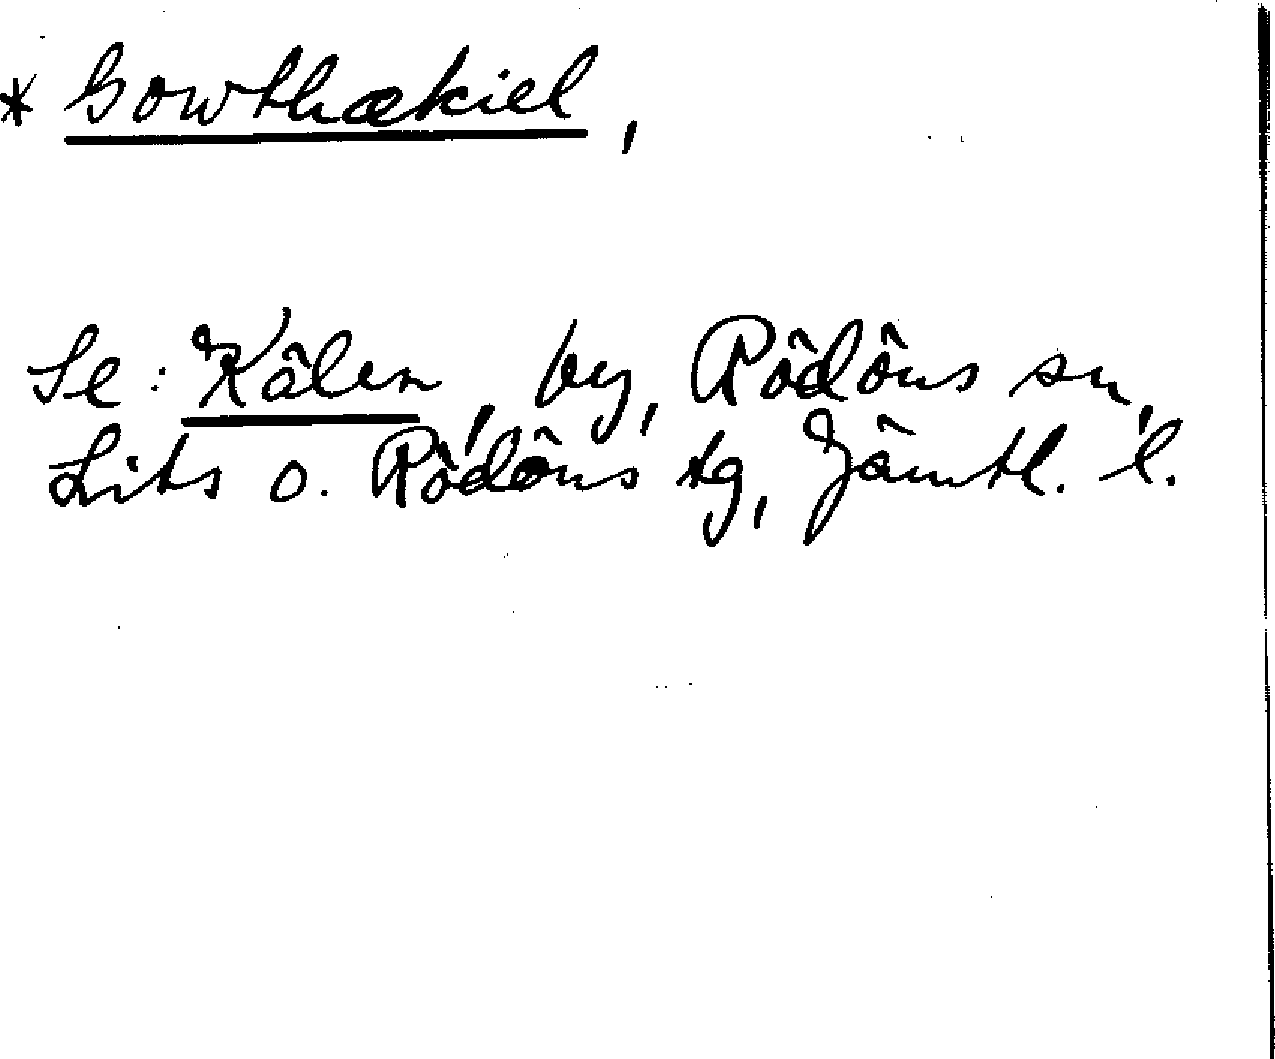 * Gowthækiel,
Se: Kälen, by, Rödöns sn,
Lits o. Rödöns tg, Jämtl. l.